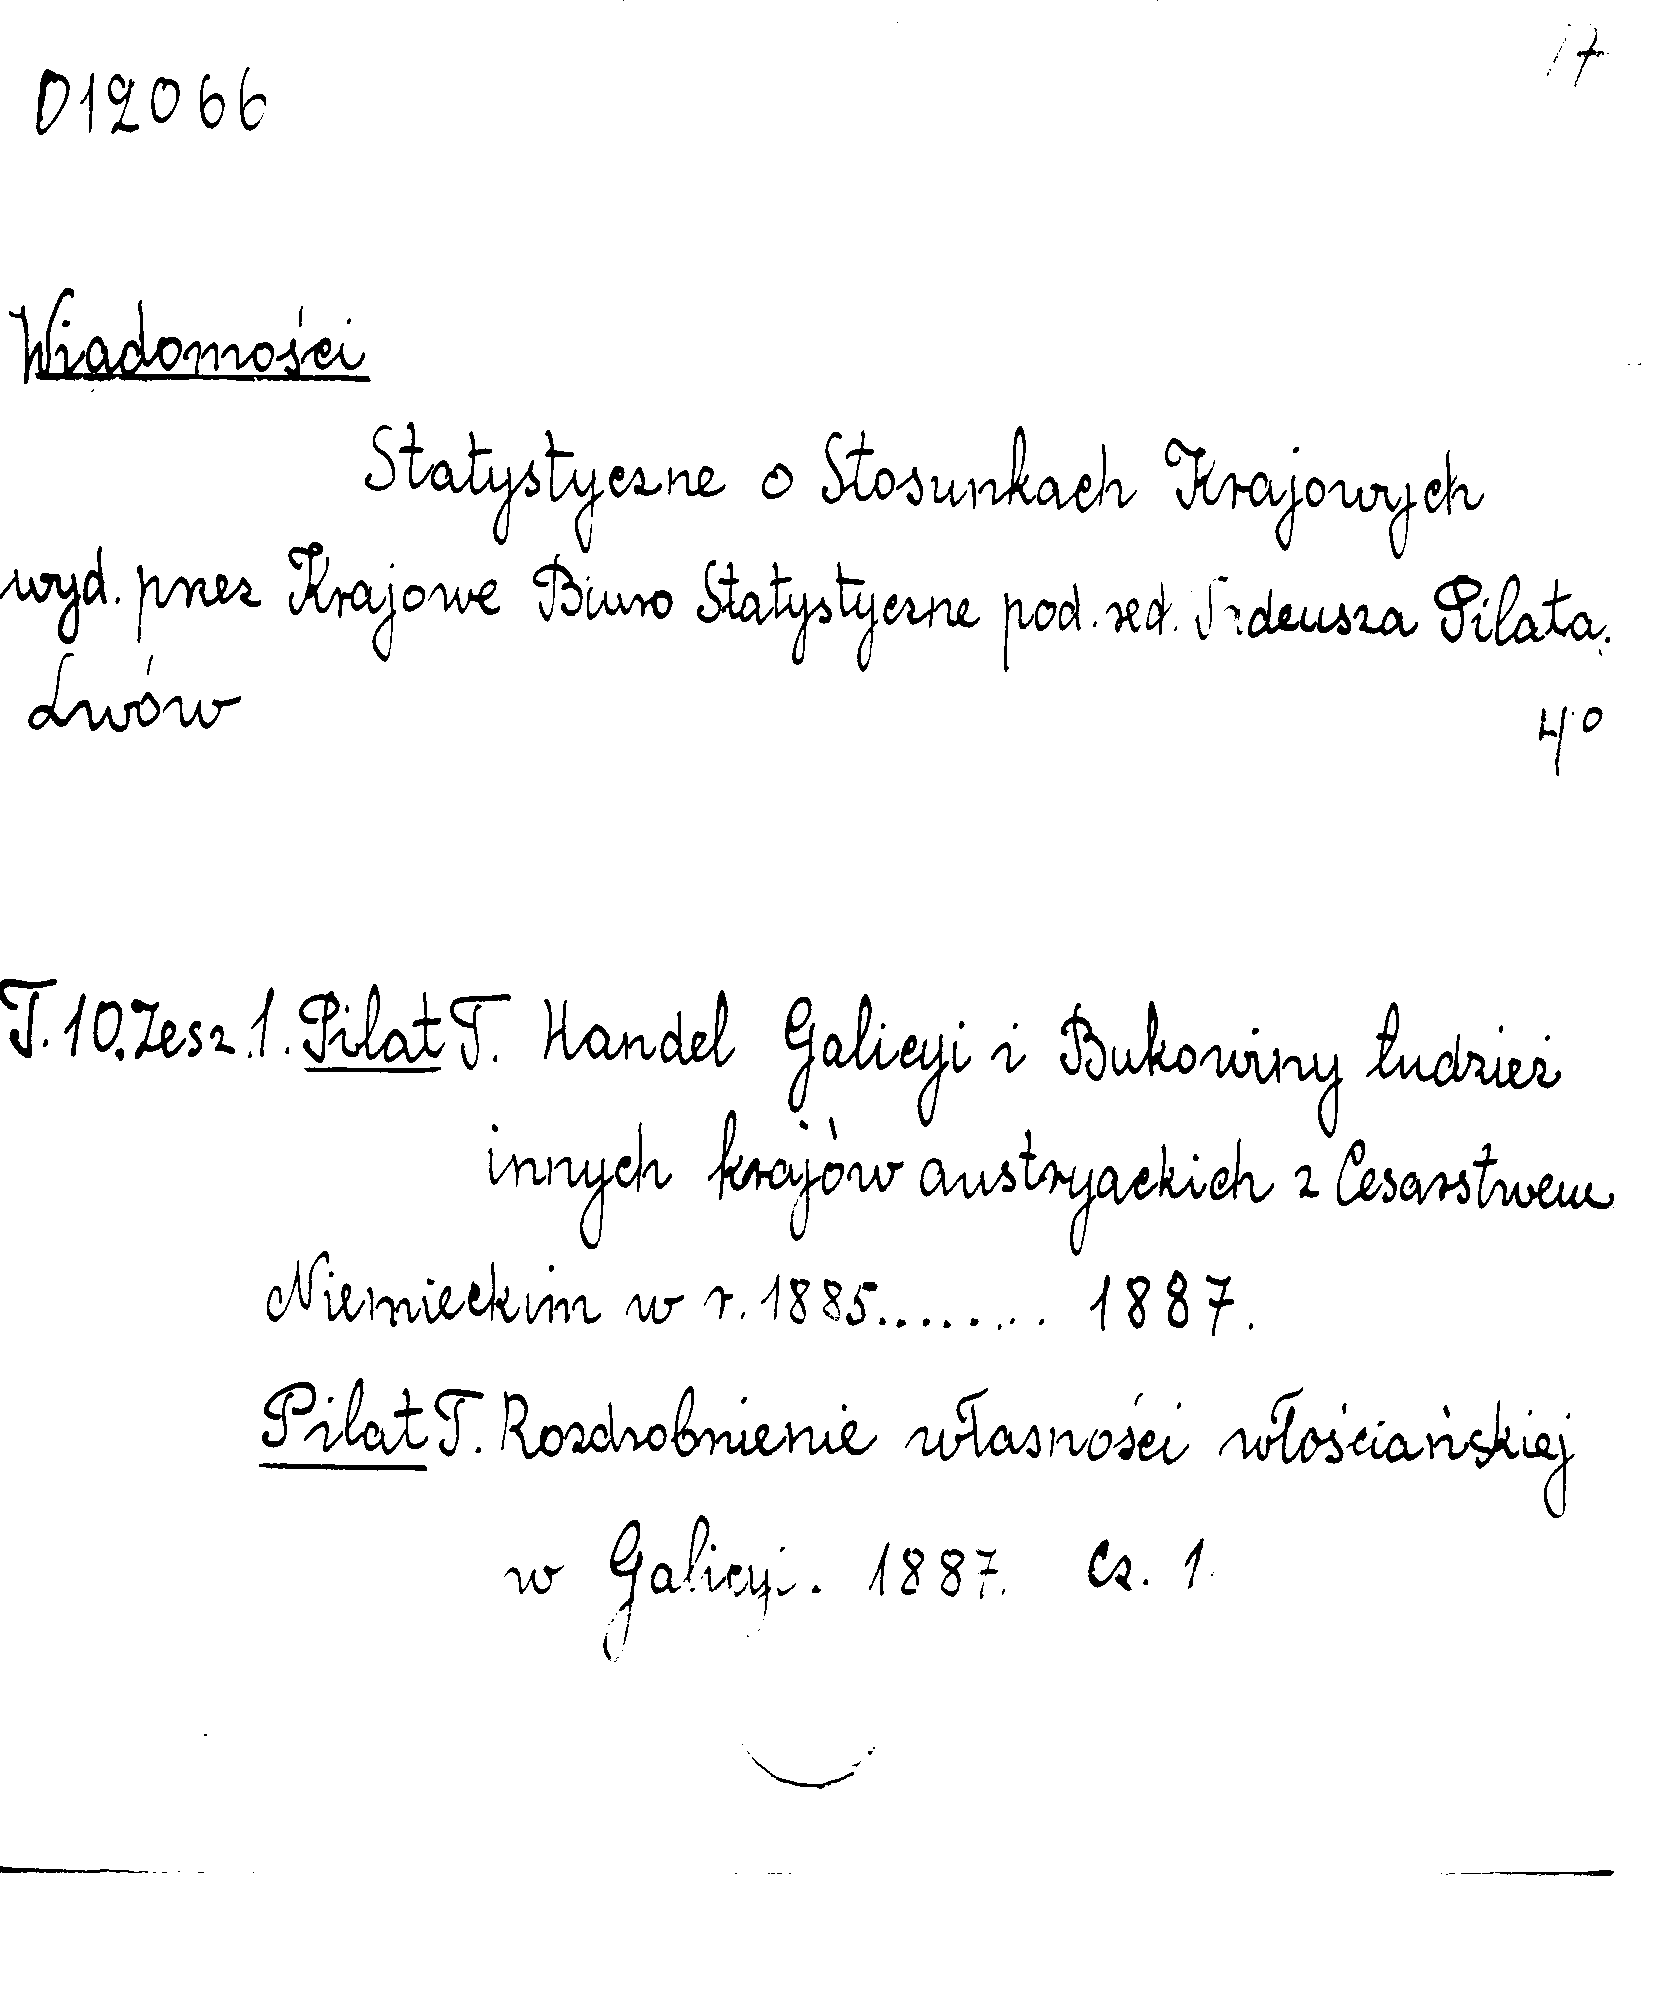 17
D12066
Wiadomości
Statystyczne o Stosunkach Krajowych
wyd. przez Krajowe Biuro Statystyczne pod. red. Tadeusza Pilata.
Lwów 4°
T. 10. Zesz. 1. Pilat T. Handel Galicyi i Bukowiny tudzież
innych krajów austryackich z Cesarstwem
Niemieckim w r. 1885........ 1887.
Pilat T. Rozdrobnienie własności włościańskiej
w Galicyi. 1887. Cz. 1.